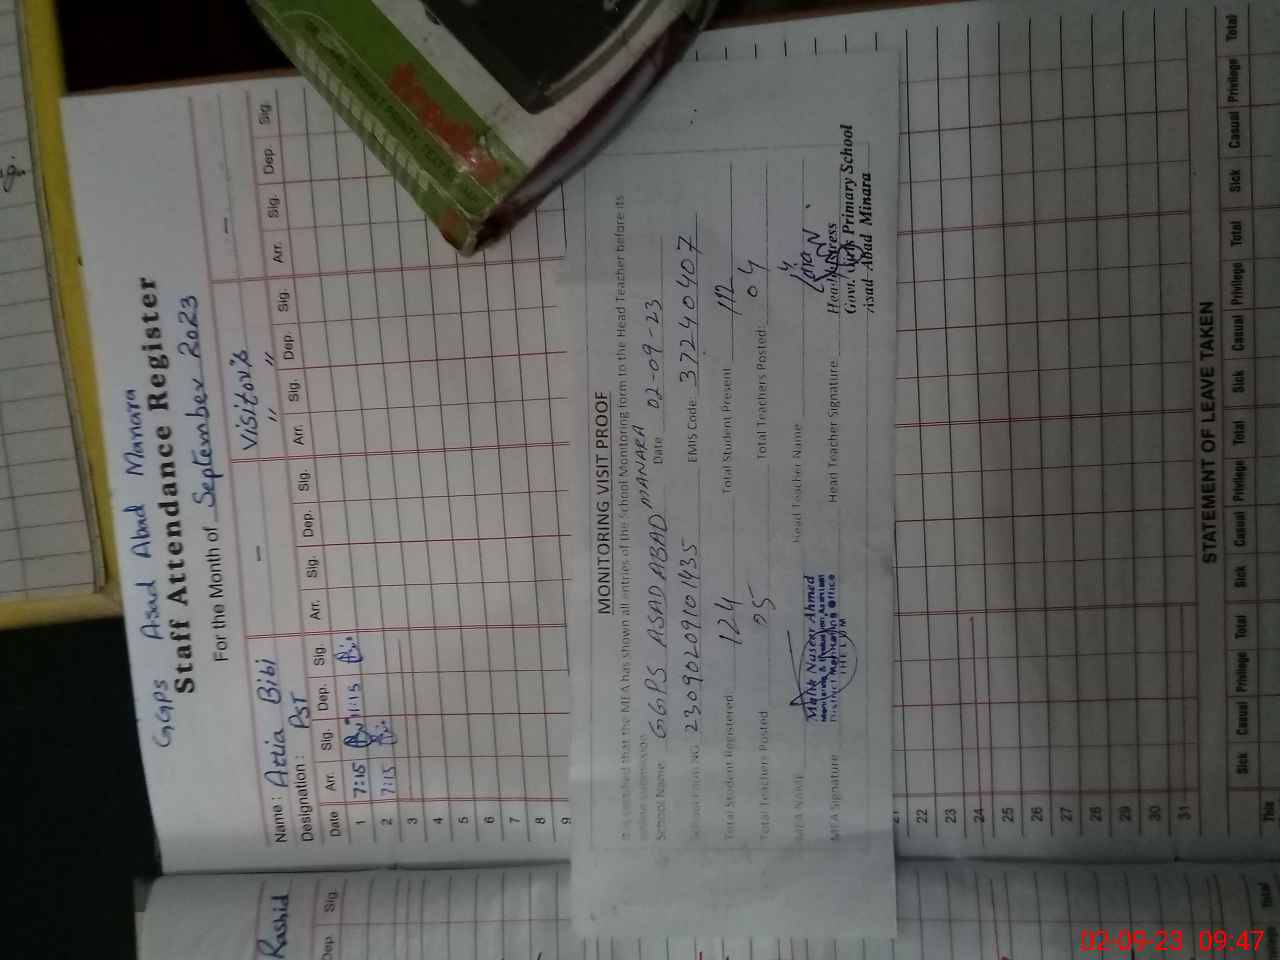 GGPS Asad Abad Manara
Staff Attendance Register
For the Month of September 2023
Name: Attia Bibi — Visitor's —
Designation: PST " "
Date Arr. Sig. Dep. Sig. Arr. Sig. Dep. Sig. Arr. Sig. Dep. Sig. Arr. Sig. Dep. Sig.
1 7:15 1:15
2 7:15
3
4
5
6
7
8
9
MONITORING VISIT PROOF
It is certified that the MEA has shown all entries of the School Monitoring form to the Head Teacher before its
online submission
School Name GGPS ASAD ABAD MANARA Date 02-09-23
School Form NO. 23090209101435 EMIS Code: 37240407
Total Student Registered: 124 Total Student Present 112
Total Teachers Posted 05 Total Teachers Posted: 04
MEA NAME Head Teacher Name
MEA Signature Head Teacher Signature
Malik Naseer Ahmed
Monitoring & Evaluation Assistant
District Monitoring Office
JHELUM
Headmistress
Govt. Girls Primary School
Asad Abad Minara
21
22
23
24
25
26
27
28
29
30
31
STATEMENT OF LEAVE TAKEN
Sick Casual Privilege Total Sick Casual Privilege Total Sick Casual Privilege Total Sick Casual Privilege Total
This
Rashid
Dep. Sig.
Total
02-09-23 09:47